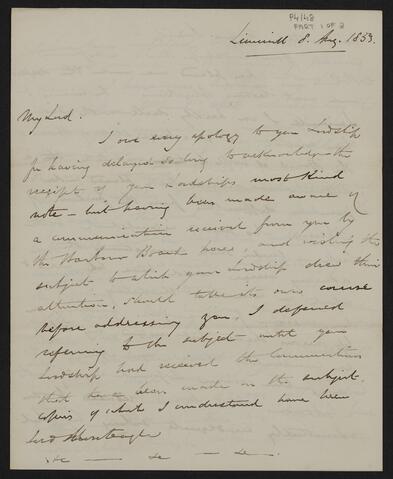 P4/48
PART 1 OF 2
Limerick 8. Aug. 1853.
My Lord.
I owe every apology to your Lordship
for having delayed so long to acknowledge the
receipt of your Lordships most kind
note - but having been made aware of
a communication received from you by
the Harbour Board here, and wishing the
subject to which your Lordship drew their
attention, should take its own course
before addressing you, I deferred
referring to the subject until your
Lordship had received the Communication
that have been made on the subject.
copies of what I understand have been
Lord Monteagle
&c — &c — &c —